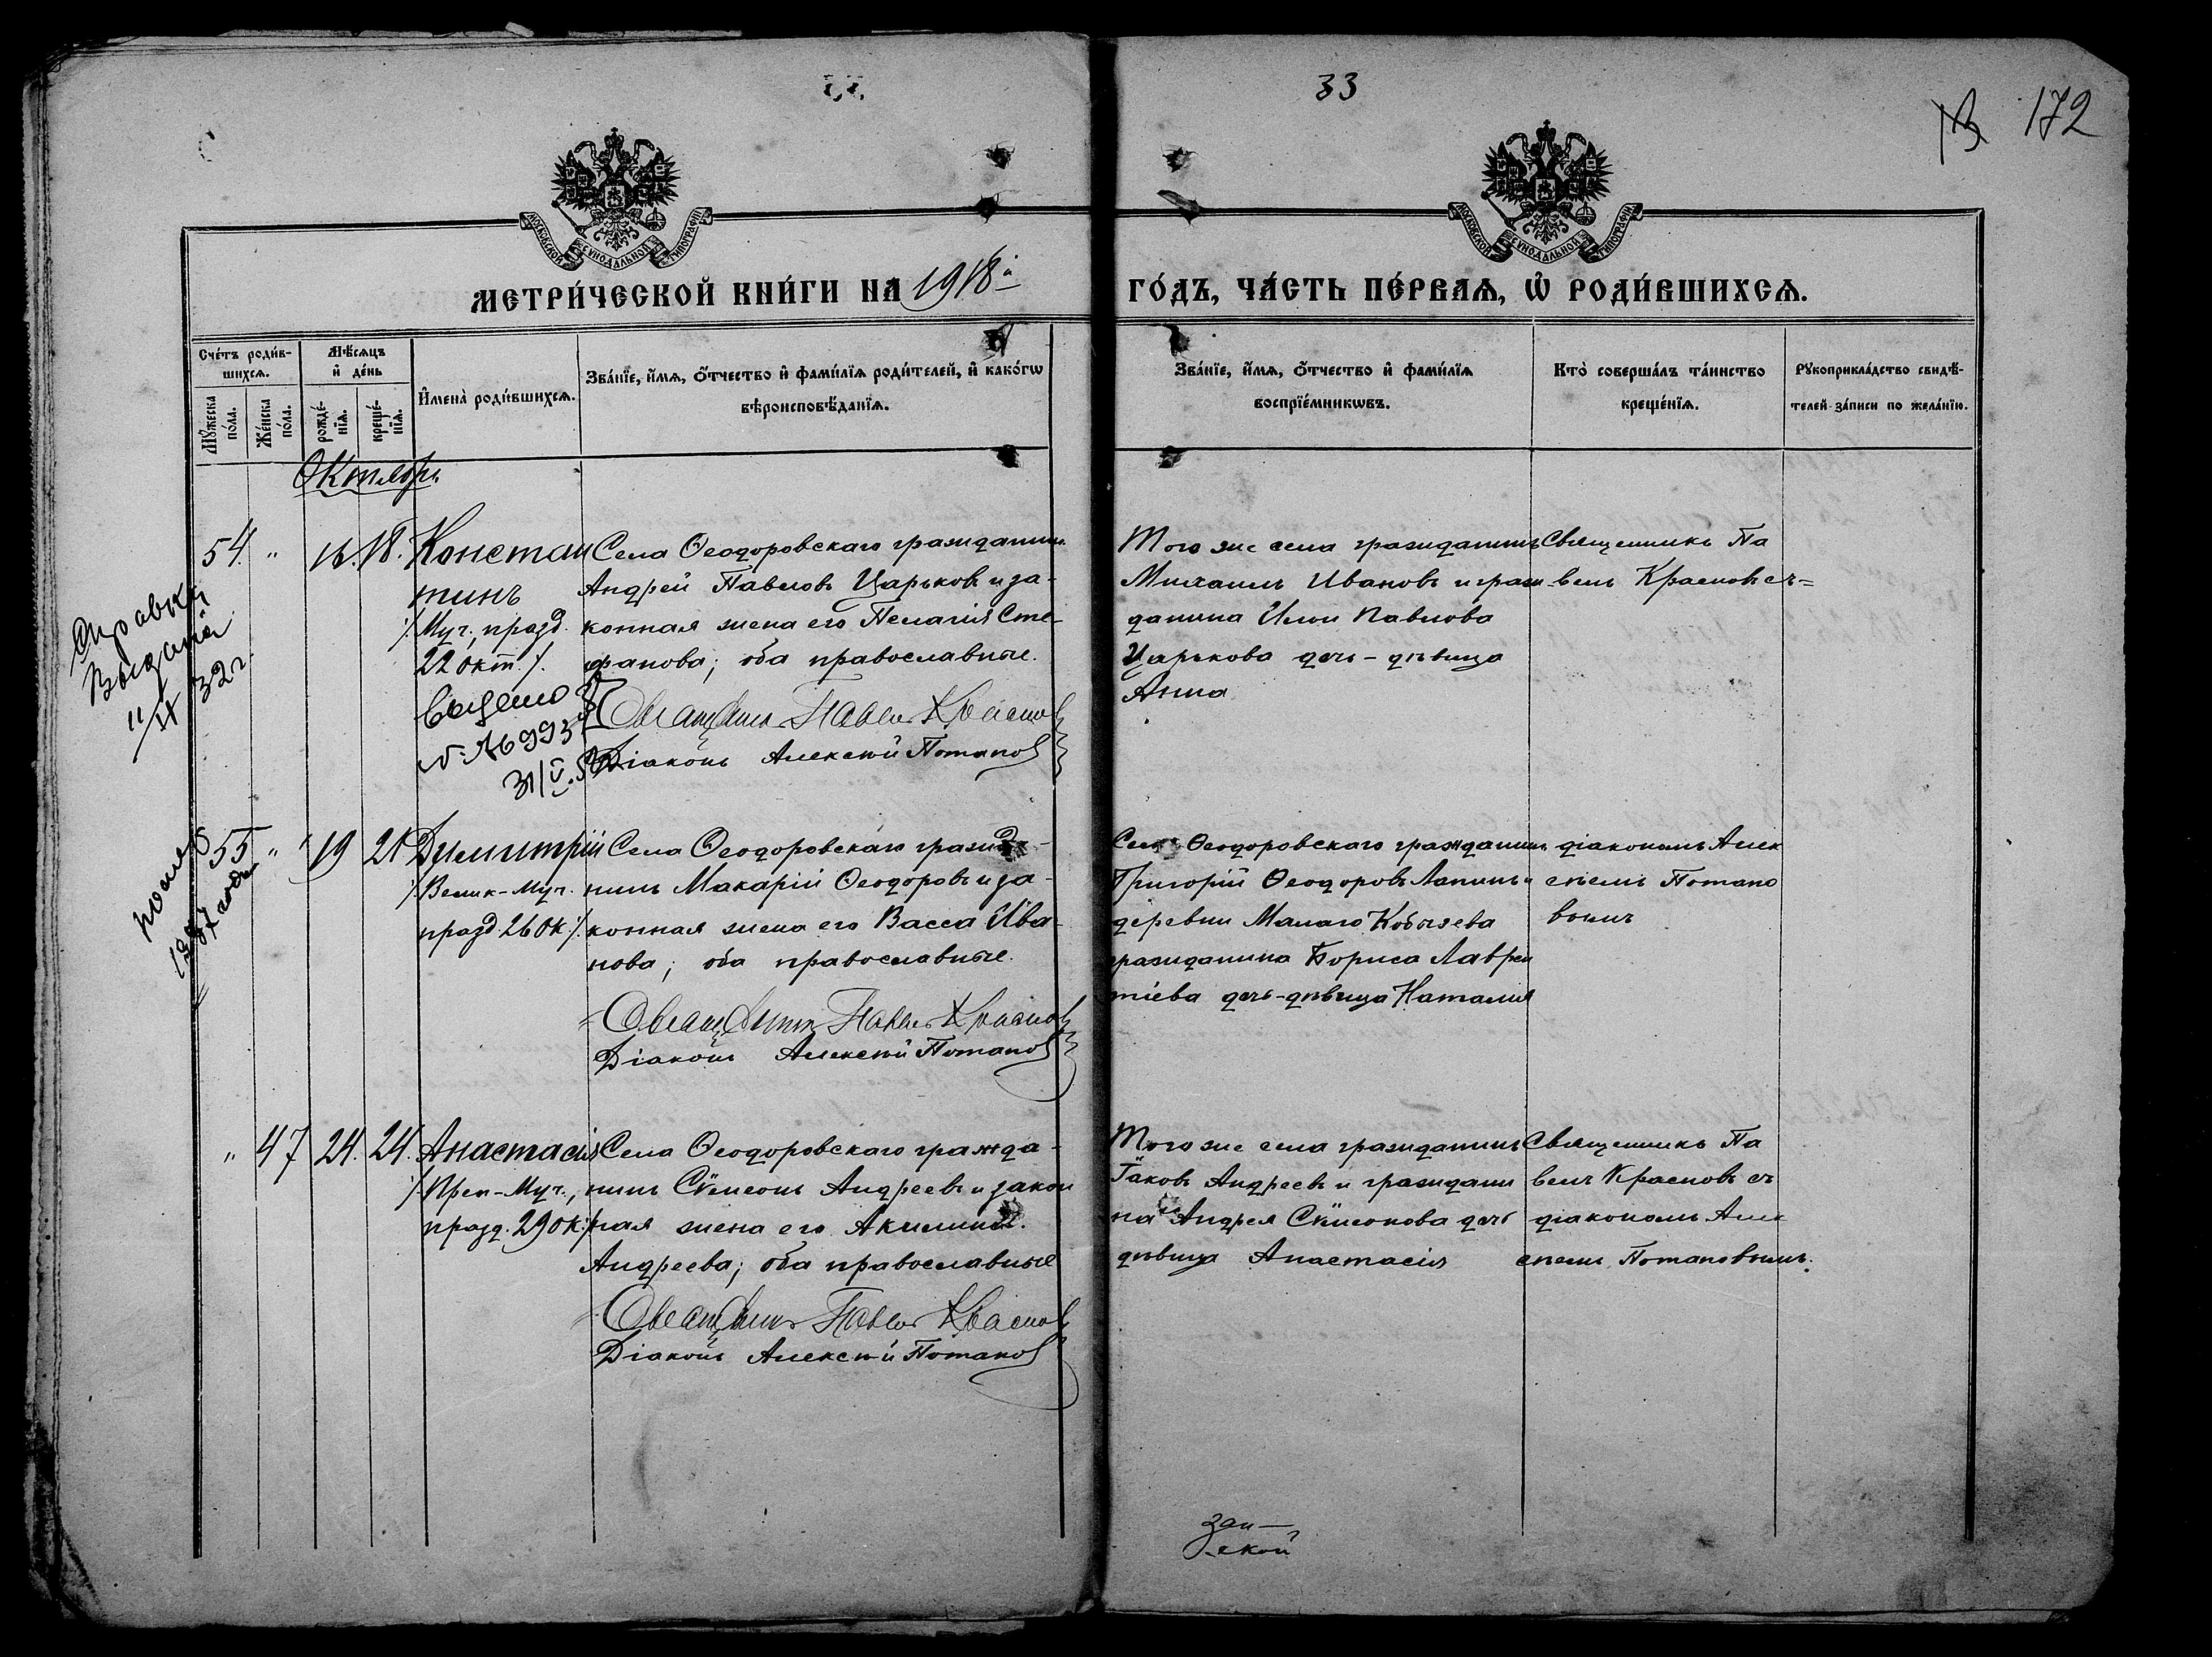 33
172
МОСКОВСКОЙ СѴНОДАЛЬНОЙ ТИПОГРАФІИ
МОСКОВСКОЙ СѴНОДАЛЬНОЙ ТИПОГРАФІИ
МЕТРИ́ЧЕСКОЙ КНИ́ГИ НА 1918й ГО́ДЪ, ЧА́СТЬ ПЕ́РВАѦ, Ѡ РОДИ́ВШИХСѦ.
Сче́тъ роди́в-
шихсѧ.
Мꙋ́жеска по́ла.
Же́нска по́ла.
Мѣ́сѧцъ
и҆ де́нь
рожде́-
нїѧ.
креще́-
нїѧ.
И҆мена̀ роди́вшихсѧ.
Зва́нїе, и҆́мѧ, ѻ҆́тчество и҆ фами́лїѧ роди́телей, и҆ како́гѡ
вѣроисповѣ́данїѧ.
Зва́нїе, и҆́мѧ, ѻ҆́тчество и҆ фами́лїѧ
воспрїе́мникѡвъ.
Кто̀ соверша́лъ та́инство
креще́нїѧ.
Рꙋкоприкла́дство свидѣ́-
телей за́писи по жела́нїю.
Октябрь
54. " 16. 18. Констан
тинъ
/Муч., празд.
22 окт./.
Села Ѳеодоровскаго гражданинъ
Андрей Павловъ Царьковъ и за-
конная жена его Пелагія Сте-
фанова; оба православные.
Священникъ Павелъ Красновъ
Діаконъ Алексѣй Потаповъ
Того же села гражданинъ
Михаилъ Ивановъ и граж
данина Ильи Павлова
Царькова дочь-дѣвица
Анна
Священникъ Па
велъ Красновъ съ=
Справка
Выдана
11/IX 32 г.
31/V.
55 " 19 21 Димитрій
/Велик-Муч.
празд. 26 ок./.
Села Ѳеодоровскаго гражда-
нинъ Макарій Ѳеодоровъ и за-
конная жена его Васса Ива-
нова; оба православные.
Священникъ Павелъ Красновъ
Діаконъ Алексѣй Потаповъ
Села Ѳеодоровскаго гражданинъ
Григорій Ѳеодоровъ Лапинъ и
деревни Малаго Кобызева
гражданина Бориса Лаврен
тіева дочь-дѣвица Наталия
діакономъ Алек
сѣемъ Потапо
вымъ
" 47 24. 24. Анастасія
/Преп-Муч.,
празд. 29 ок./
Села Ѳеодоровскаго гражда-
нинъ Сѵмеонъ Андреевъ и закон
ная жена его Акилина
Андреева; оба православные
Священникъ Павелъ Красновъ
Діаконъ Алексѣй Потаповъ
Того же села гражданинъ
Іаковъ Андреевъ и граждани
на Андрея Сѵмеонова дочь
дѣвица Анастасія
Священникъ Па
велъ Красновъ съ
діакономъ Алек
сѣемъ Потаповымъ.